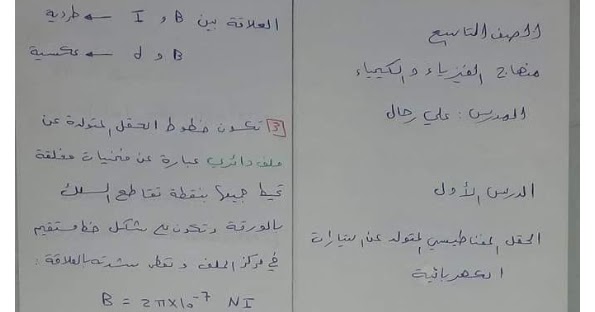 الصف التاسع
منهاج الفيزياء والكيمياء
المدرس: علي رحال
الدرس الأول
الحقل المغناطيسي المتولد عن التيارات
الكهربائية
العلاقة بين B و I ← طردية
B و d ← عكسية
3 تكون خطوط الحقل المتولدة عن
ملف دائري عبارة عن منحنيات مغلقة
تحيط جميعها بنقطة تقاطع السلك
بالورقة وتكون على شكل خط مستقيم
في مركز الملف وتعطى شدته بالعلاقة:
B = 2π×10⁻⁷ NI